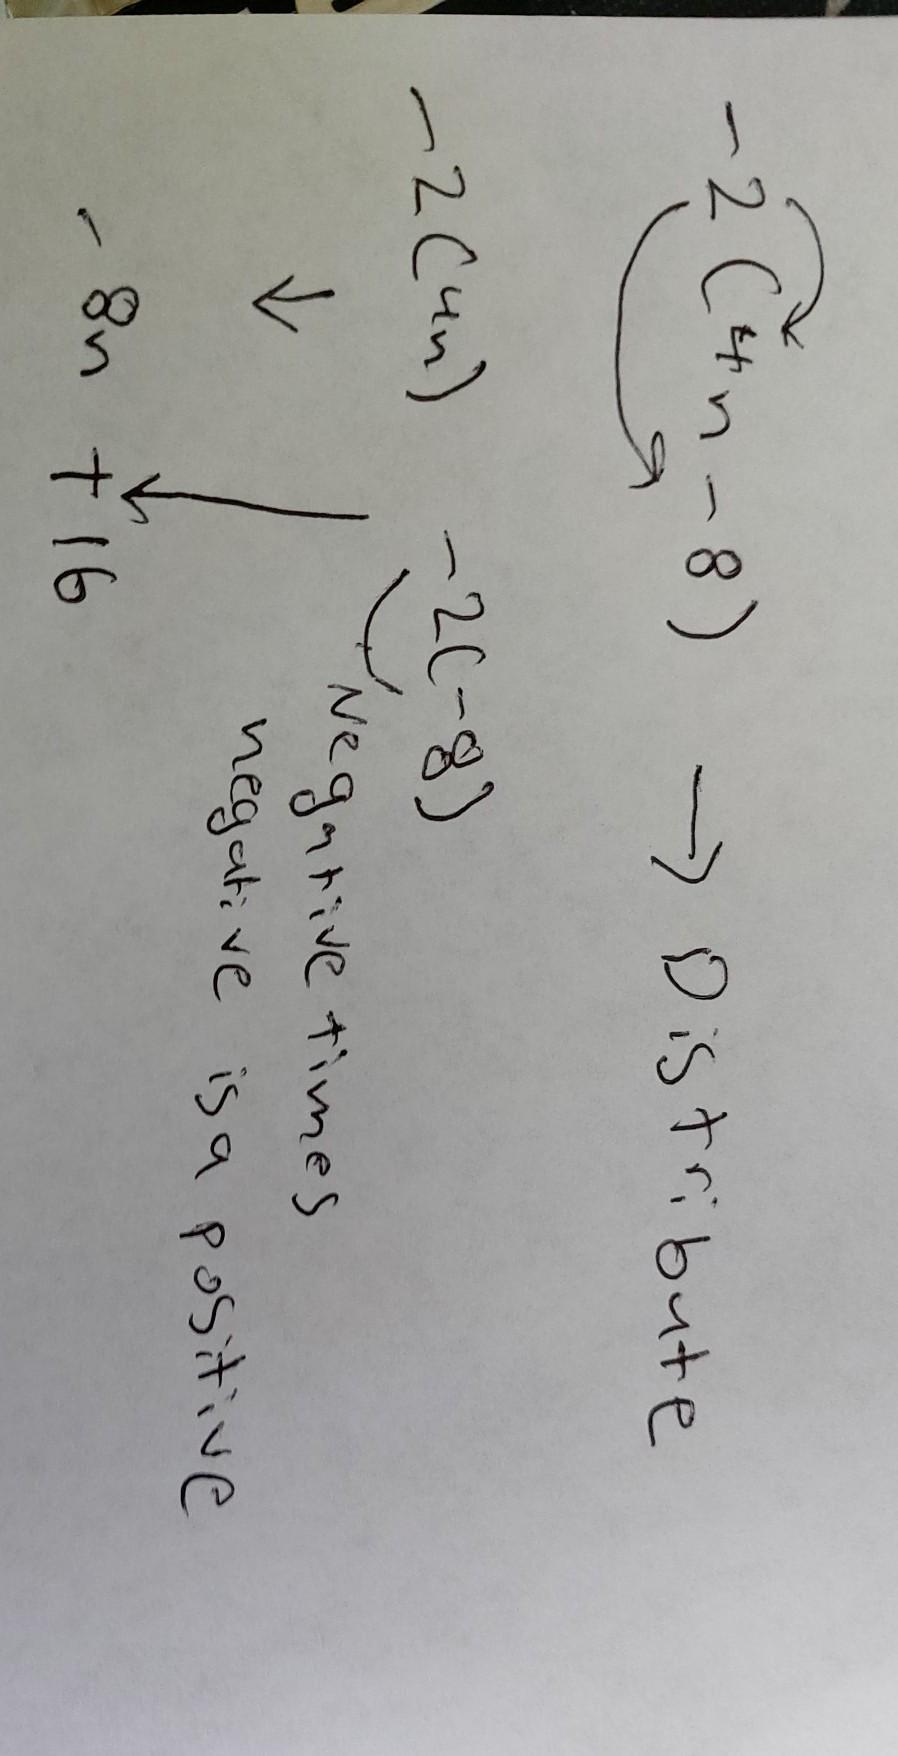 -2(4n-8) → Distribute
-2(4n) -2(-8)
Negative times
negative is a positive
-8n + 16